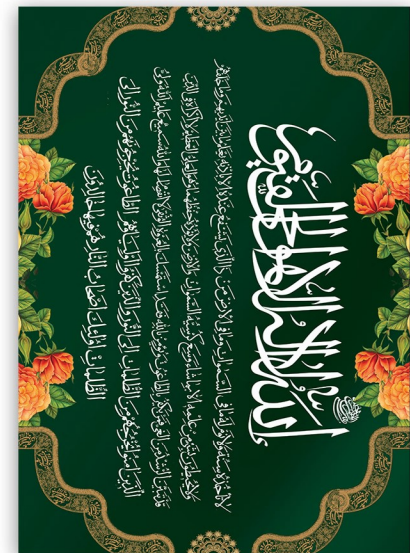 الله لا إله إلا هو الحي القيوم
لا تأخذه سنة ولا نوم له ما في السموات وما في الارض من ذا الذي يشفع عنده الا باذنه يعلم ما بين ايديهم وما خلفهم
ولا يحيطون بشيء من علمه الا بما شاء وسع كرسيه السموات والارض ولا يؤده حفظهما وهو العلي العظيم لا اكراه في الدين
قد تبين الرشد من الغي فمن يكفر بالطاغوت ويؤمن بالله فقد استمسك بالعروة الوثقى لا انفصام لها والله سميع عليم الله ولي
الذين امنوا يخرجهم من الظلمات الى النور والذين كفروا اولياؤهم الطاغوت يخرجونهم من النور الى
الظلمات اولئك اصحاب النار هم فيها خالدون